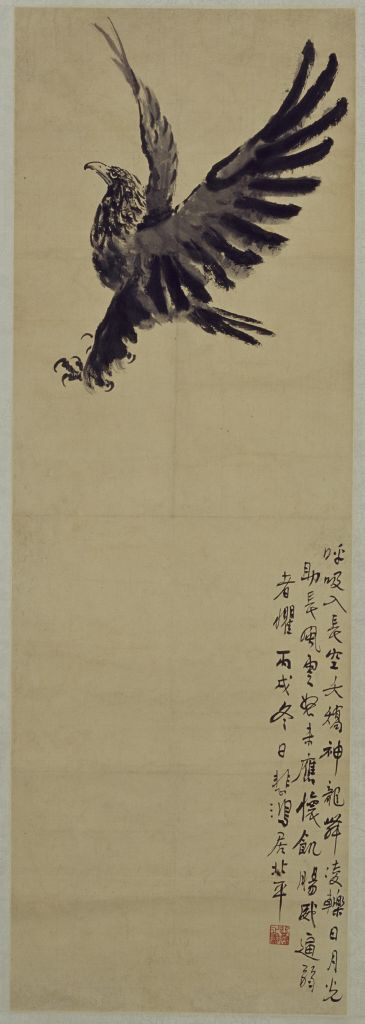 呼吸入長空夭矯神龍舞凌轢日月光
助長風雲怒未應懷飢腸威逼弱
者懼 丙戌冬日悲鴻居北平